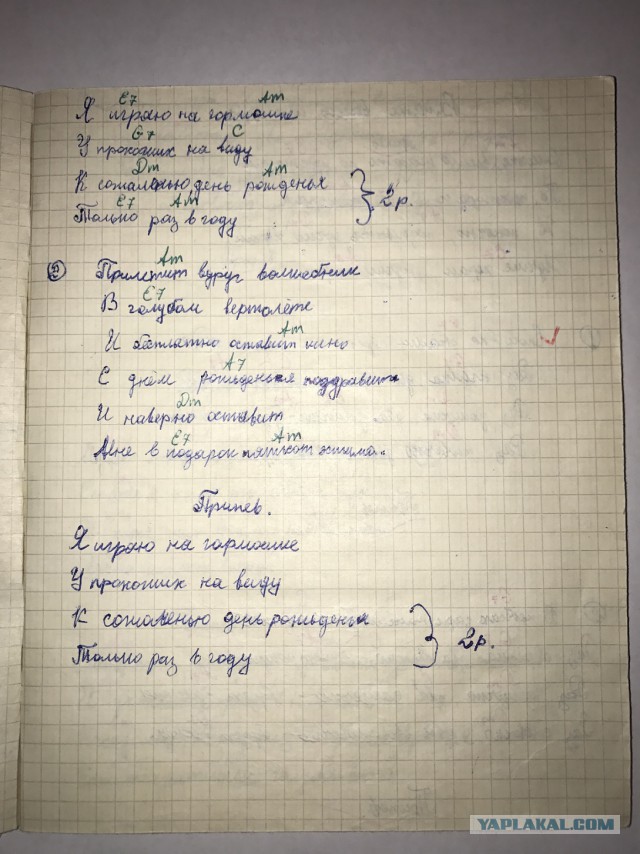 E7 Am
Я играю на гармошке
G7 C
У прохожих на виду
Dm Am
К сожаленью день рожденья
E7 Am } 2р.
Только раз в году
Am
② Прилетит вдруг волшебник
E7
В голубом вертолёте
Am
И бесплатно оставит кино
A7
С днём рожденья поздравит
Dm
И наверно оставит
E7 Am
Мне в подарок пятьсот эскимо.
Припев.
Я играю на гармошке
У прохожих на виду
К сожаленью день рожденья
Только раз в году } 2р.
YAPLAKAL.COM